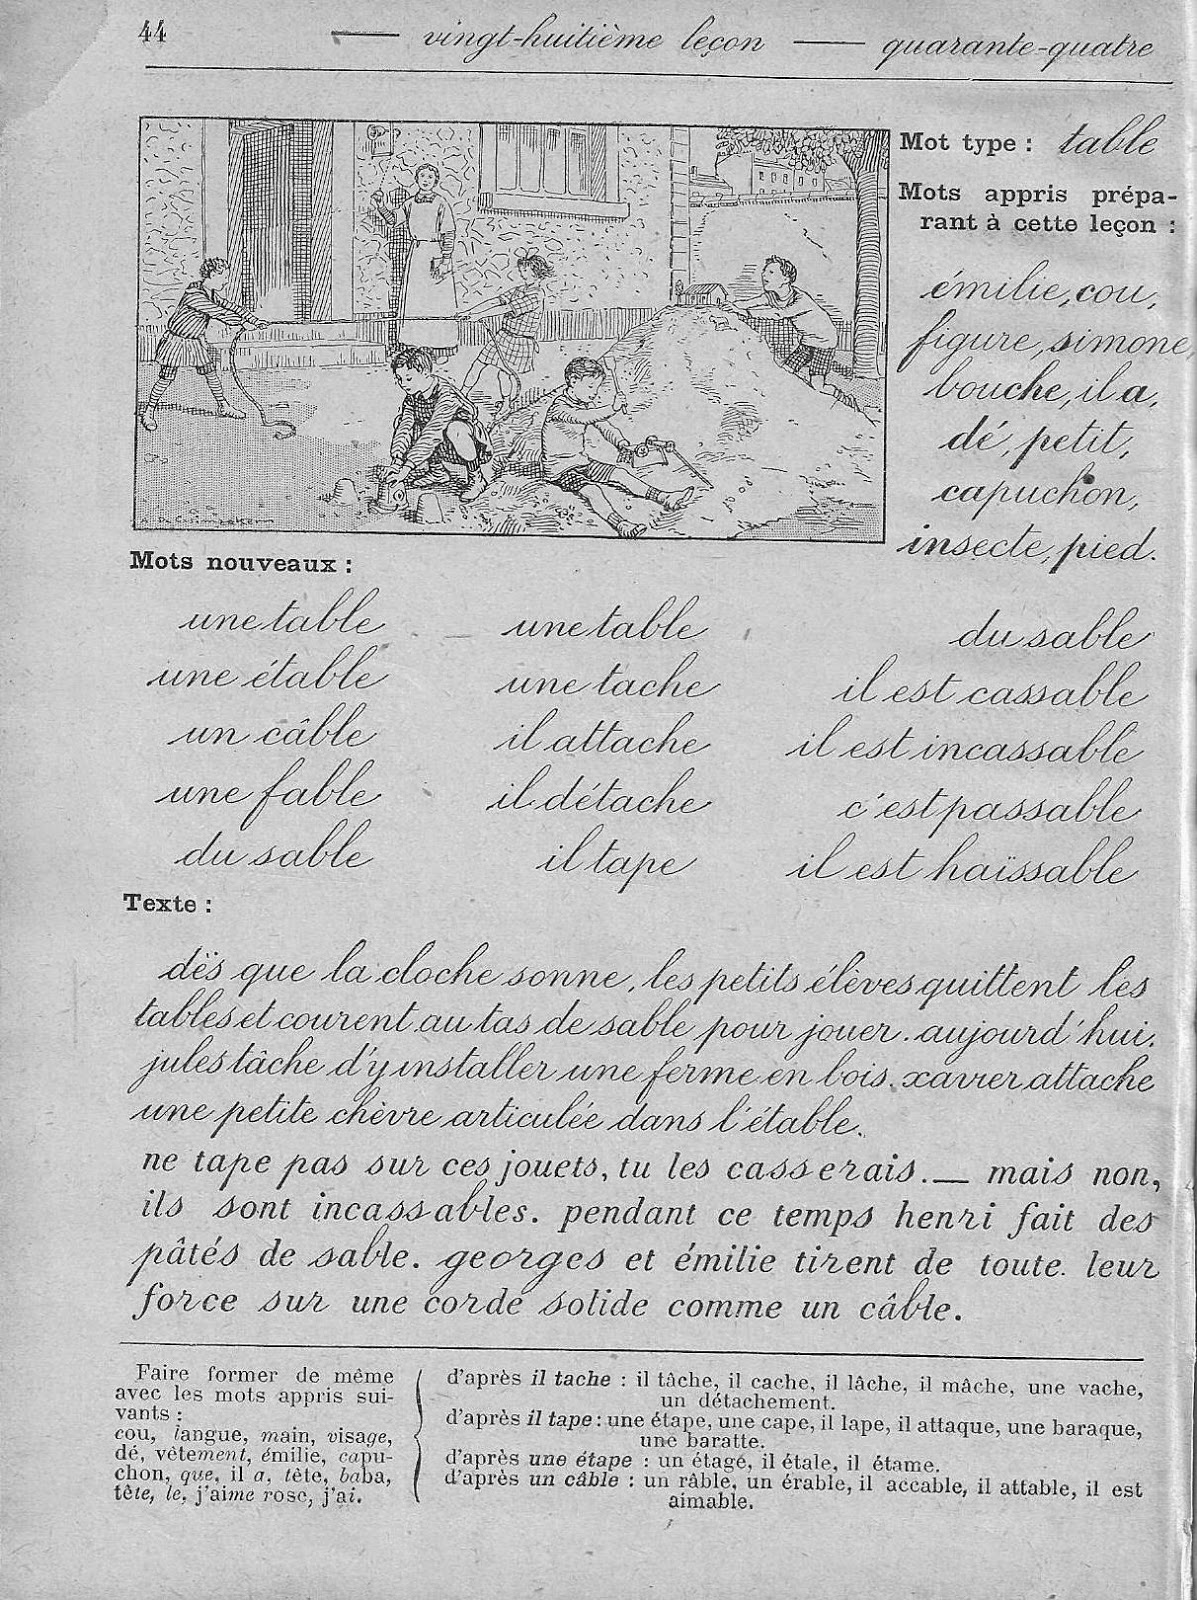 44 — vingt-huitième leçon — quarante-quatre
Mot type : table
Mots appris prépa-
rant à cette leçon :
émilie, cou,
figure, simone,
bouche, il a,
dé, petit,
capuchon,
insecte, pied.
Mots nouveaux :
une table une table du sable
une étable une tache il est cassable
un câble il attache il est incassable
une fable il détache c'est passable
du sable il tape il est haïssable
Texte :
dës que la cloche sonne, les petits élèves quittent les
tables et courent au tas de sable pour jouer. aujourd'hui.
jules tâche d'y installer une ferme en bois. xavier attache
une petite chèvre articulée dans l'étable.
ne tape pas sur ces jouets, tu les casserais. — mais non,
ils sont incassables. pendant ce temps henri fait des
pâtés de sable. georges et émilie tirent de toute leur
force sur une corde solide comme un câble.
Faire former de même
avec les mots appris sui-
vants :
cou, langue, main, visage,
dé, vêtement, émilie, capu-
chon, que, il a, tête, baba,
tête, le, j'aime rose, j'ai.
d'après il tache : il tâche, il cache, il lâche, il mâche, une vache,
un détachement.
d'après il tape : une étape, une cape, il lape, il attaque, une baraque,
une baratte.
d'après une étape : un étage, il étale, il étame.
d'après un câble : un râble, un érable, il accable, il attable, il est
aimable.